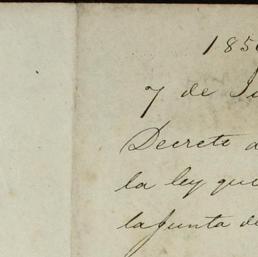 185
7 de
Decreto
la ley que
la Junta de